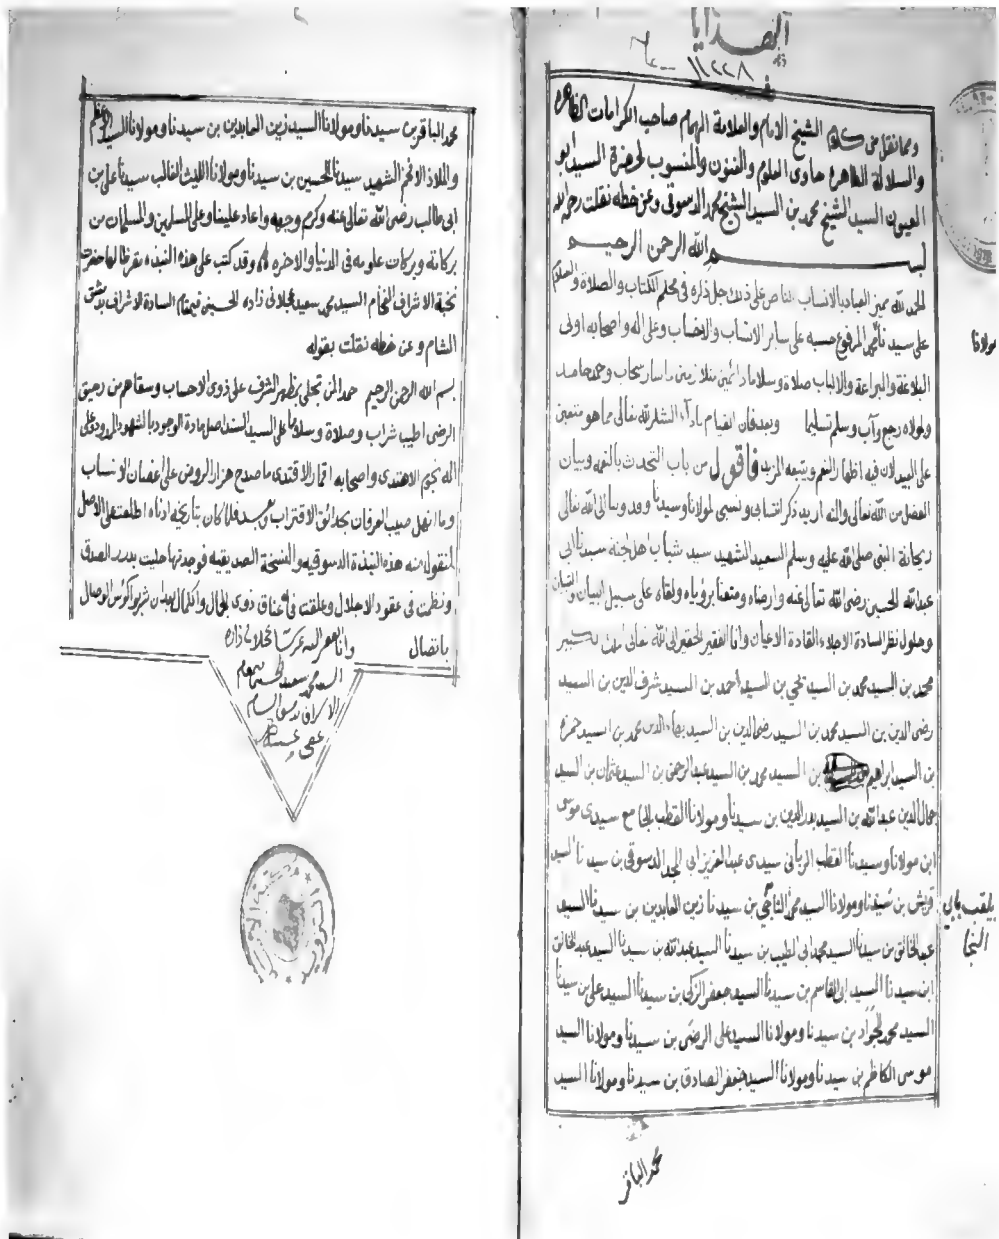 ١١٢٢٨
ومما نقل من كلام الشيخ الامام والعلامة الهمام صاحب الكرامات الظاهره
والسلالة الطاهره حاوى العلوم والفنون والمنسوب لحضرة السيد ابو
العيون السيد الشيخ محمد بن السيد الشيخ محمد الدسوقى وعن خطه نقلت رحمه الله
بسم الله الرحمن الرحيم
الحمد لله مميز العباد بالانساب الناص على ذلك جل ذكره فى محكم الكتاب والصلاة والسلام
على سيدنا محمد المرفوع حسبه على ساير الانساب والاحساب وعلى اله واصحابه اولى
البلاغة والبراعة والالباب صلاة وسلاما دائمين متلازمين ما سار سحاب وحمد حامد
ولمولاه رجع وآب وسلم تسليما وبعد فان القيام بادآء الشكر لله تعالى مما هو متعين
على العبيد لان فيه اظهار النعم ويتبعه المزيد فاقول من باب التحدث بالنعمه وبيان
الفضل من الله تعالى والمنه اريد ذكر انتسابى ونسبى لمولانا وسيدنا وقدوتنا الى الله تعالى
ريحانة النبى صلى الله عليه وسلم السعيد الشهيد سيد شباب اهل الجنه سيدنا ابى
عبد الله الحسين رضى الله تعالى عنه وارضاه ومتعنا برؤياه ولقاه على سبيل البيان والتبيان
وحلول نظر السادة الاجلاء القادة الاعيان وانا الفقير الحقير الى الله تعالى
محمد بن السيد محمد بن السيد يحي بن السيد احمد بن السيد شرف الدين بن السيد
رضى الدين بن السيد محمد بن السيد رضى الدين بن السيد بهاء الدين محمد بن السيد حمزه
بن السيد ابراهيم بن السيد محمد بن السيد عبد الرحمن بن السيد عثمان بن السيد
جمال الدين عبد الله بن السيد بدر الدين بن سيدنا ومولانا القطب الجامع سيدى موسى
ابن مولانا وسيدنا القطب الربانى سيدى عبد العزيز ابى المجد الدسوقى بن سيدنا السيد
قريش بن سيدنا ومولانا السيد محمد الناجى بن سيدنا زين العابدين بن سيدنا السيد
عبد الخالق بن سيدنا السيد محمد ابى الطيب بن سيدنا السيد عبد الله بن سيدنا السيد عبد الخالق
ابن سيدنا السيد ابى القاسم بن سيدنا السيد جعفر الزكى بن سيدنا السيد على بن سيدنا
السيد محمد الجواد بن سيدنا ومولانا السيد على الرضى بن سيدنا ومولانا السيد
موسى الكاظم بن سيدنا ومولانا السيد جعفر الصادق بن سيدنا ومولانا السيد
محمد الباقر
مولانا
يلقب بابى
النجا
محمد الباقر بن سيدنا ومولانا السيد زين العابدين بن سيدنا ومولانا السيد الاعظم
والملاذ الافخم الشهيد سيدنا الحسين بن سيدنا ومولانا الليث الغالب سيدنا على بن
ابى طالب رضى الله تعالى عنه وكرم وجهه واعاد علينا وعلى المسلمين والمسلمات من
بركاته وبركات علومه فى الدنيا والاخره وقد كتب على هذه النبذه مقرظا لها حضرت
نخبة الاشراف الفخام السيد محمد سعيد عجلانى زاده الحسينى قيمقام السادة الاشراف بدمشق
الشام وعن خطه نقلت بقوله
بسم الله الرحمن الرحيم حمد المن تجلى بمظهر الشرف على ذوى الاحساب وسقاهم من رحيق
الرضى اطيب شراب وصلاة وسلاما على السيد السند اصل مادة الوجود بالشهود الممدود وعلى
اله نجوم الاهتدى واصحابه اقمار الاقتدى ما صدح هزار الروض على اغصان الانساب
وما انهل صيب العرفان بحدائق الاقتراب وبعد فلما كان بتاريخه ادناه اطلعت على الاصل
المنقول منه هذه النبذة الدسوقيه والنسخة الصديقيه فوجدتها حليت بدرر الصدق
ونظمت فى عقود الاجلال وعلقت فى اعناق ذوى الجمال والكمال شربوا كؤس الوصال
باتصال
وانا الفقير اليه عجلانى زاده
السيد محمد سعيد الحسينى قيمقام
الاشراف بدمشق الشام
عفى عنه